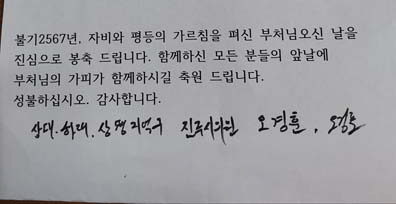 불기2567년, 자비와 평등의 가르침을 펴신 부처님오신 날을
진심으로 봉축 드립니다. 함께하신 모든 분들의 앞날에
부처님의 가피가 함께하시길 축원 드립니다.
성불하십시오. 감사합니다.
상대.하대.상평지역구 진주시의원 오경훈,